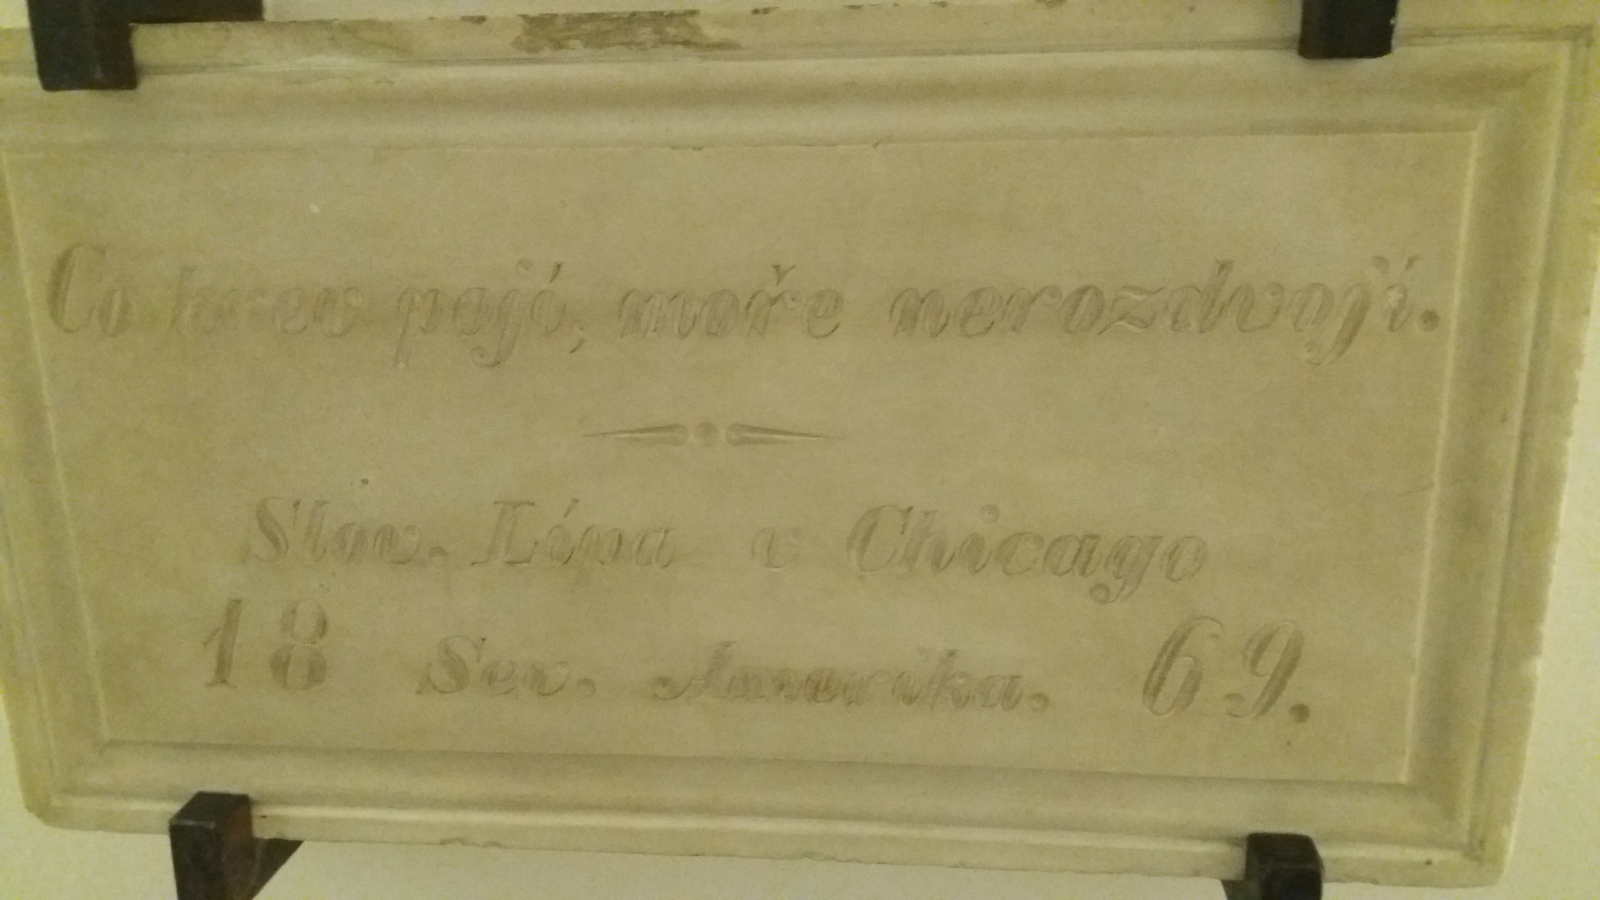 Co krev pojí, moře nerozdvojí.
Slov. Lípa v Chicago
18 Sev. Amerika. 69.